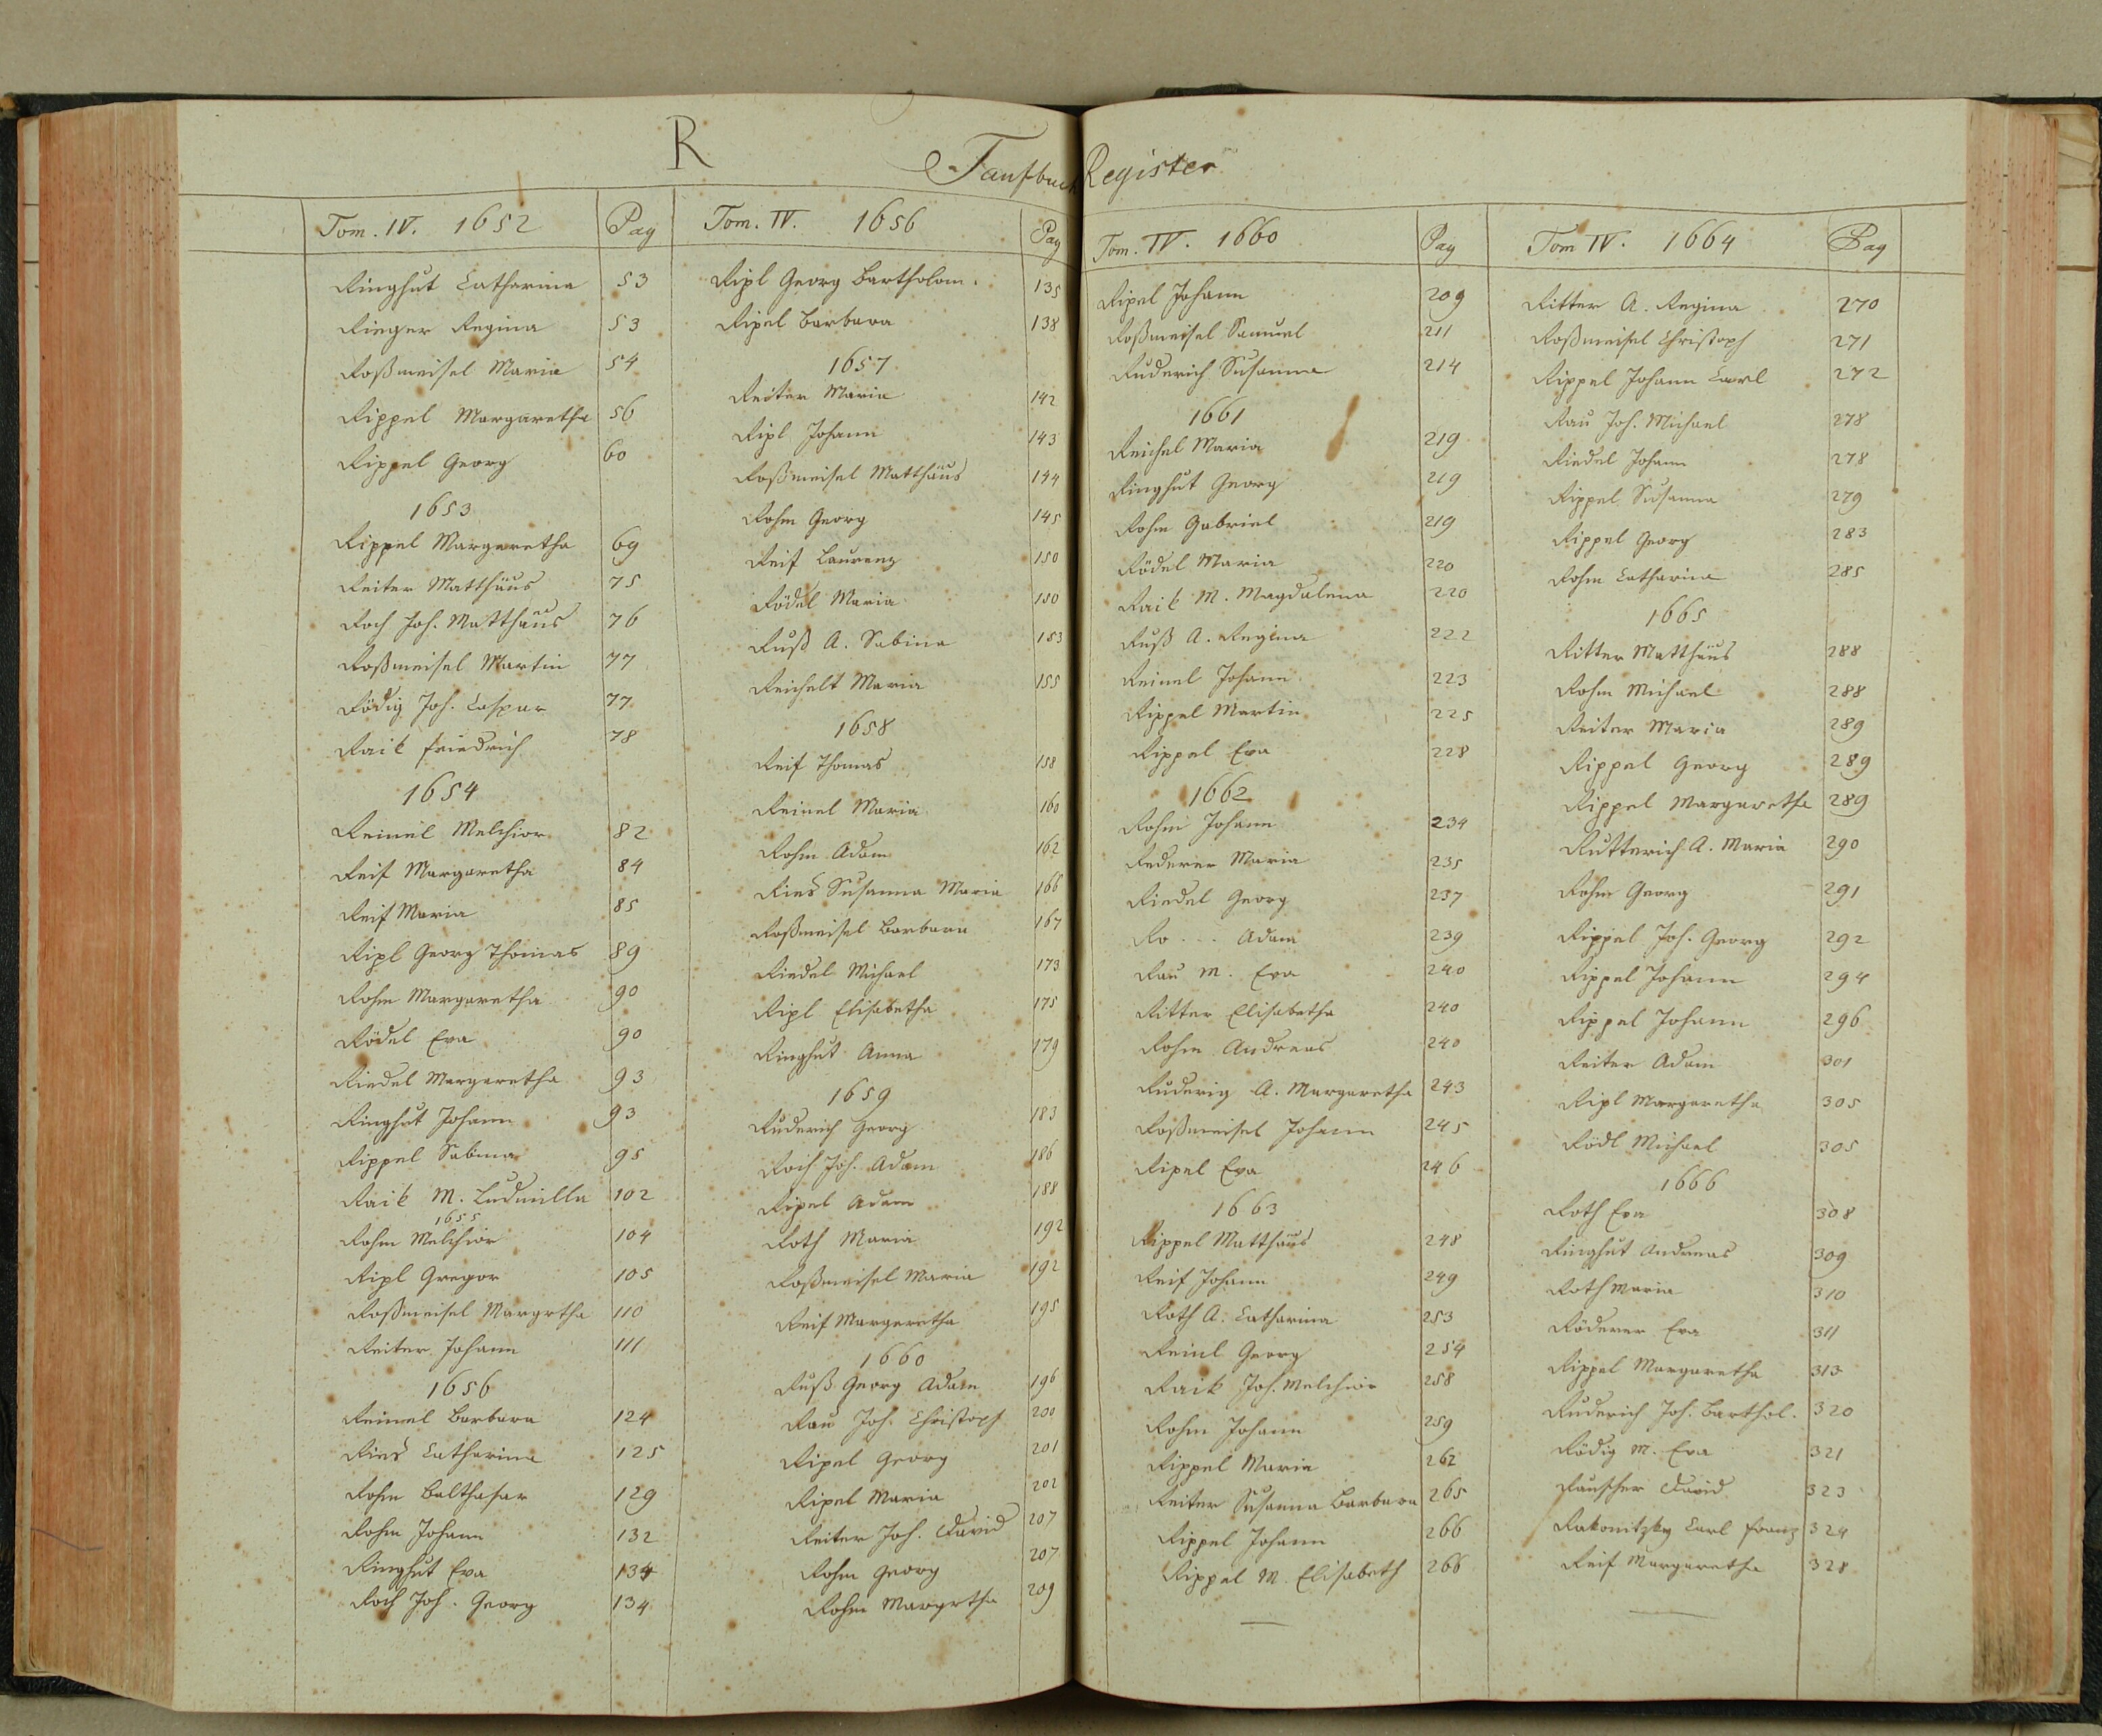 R
Taufbuch Register
Tom. IV. 1652 Pag
Ringhut Catharina 53
Rieger Regina 53
Roßmeisel Maria 54
Rippel Margaretha 56
Rippel Georg 60
1653
Rippel Margaretha 69
Reiter Matthäus 75
Roch Joh. Matthäus 76
Roßmeisel Martin 77
Rödig Joh. Caspar 77
Raik Friedrich 78
1654
Reinel Melchior 82
Reif Margaretha 84
Reif Maria 85
Ripl Georg Thomas 89
Rohm Margaretha 90
Rödel Eva 90
Riedel Margaretha 93
Ringhut Johann 93
Rippel Sabina 95
Raik M. Ludmilla 102
1655
Rohm Melchior 104
Ripl Gregor 105
Roßmeisel Margrtha 110
Reiter Johann 111
1656
Reinel Barbara 124
Ries Catharina 125
Rohm Balthasar 129
Rohm Johann 132
Ringhut Eva 134
Roch Joh. Georg 134
Tom. IV. 1656 Pag
Ripl Georg Bartholom. 135
Ripel Barbara 138
1657
Reiter Maria 142
Ripl Johann 143
Roßmeisel Matthäus 144
Rohm Georg 145
Reif Laurenz 150
Rödel Maria 150
Ruß A. Sabina 153
Reichelt Maria 155
1658
Reif Thomas 158
Reinel Maria 160
Rohm Adam 162
Ries Susanna Maria 166
Roßmeisel Barbara 167
Riedel Michael 173
Ripl Elisabetha 175
Ringhut Anna 179
1659
Ruderich Georg 183
Roch Joh. Adam 186
Ripel Adam 188
Roth Maria 192
Roßmeisel Maria 192
Reif Margaretha 195
1660
Ruß Georg Adam 196
Rau Joh. Christoph 200
Ripel Georg 201
Ripel Maria 202
Reiter Joh. David 207
Rohm Georg 207
Rohm Margrtha 209
Tom. IV. 1660 Pag
Ripel Johann 209
Roßmeisel Samuel 211
Ruderich Susanna 214
1661
Reichel Maria 219
Ringhut Georg 219
Rohm Gabriel 219
Rödel Maria 220
Raik M. Magdalena 220
Ruß A. Regina 222
Reinel Johann 223
Rippel Martin 225
Rippel Eva 228
1662
Rohm Johann 234
Rederer Maria 235
Riedel Georg 237
Ro... Adam 239
Rau M. Eva 240
Ritter Elisabetha 240
Rohm Andreas 240
Ruderig A. Margaretha 243
Roßmeisel Johann 245
Ripel Eva 246
1663
Rippel Matthäus 248
Reif Johann 249
Roth A. Catharina 253
Reinl Georg 254
Raik Joh. Melchior 258
Rohm Johann 259
Rippel Maria 262
Reiter Susanna Barbara 265
Rippel Johann 266
Rippel M. Elisabeth 266
Tom IV. 1664 Pag
Ritter A. Regina 270
Roßmeisel Christoph 271
Rippel Johann Carl 272
Rau Joh. Michael 278
Riedel Johann 278
Rippel Susanna 279
Rippel Georg 283
Rohm Catharina 285
1665
Ritter Matthäus 288
Rohm Michael 288
Reiter Maria 289
Rippel Georg 289
Rippel Margaretha 289
Rutterich A. Maria 290
Rohm Georg 291
Rippel Joh. Georg 292
Rippel Johann 294
Rippel Johann 296
Reiter Adam 301
Ripl Margaretha 305
Rödl Michael 305
1666
Roth Eva 308
Ringhut Andreas 309
Roth Maria 310
Röderer Eva 311
Rippel Margaretha 313
Ruderich Joh. Barthol. 320
Rödig M. Eva 321
Rauscher David 323
Rakonitzky Carl Franz 324
Reif Margaretha 328